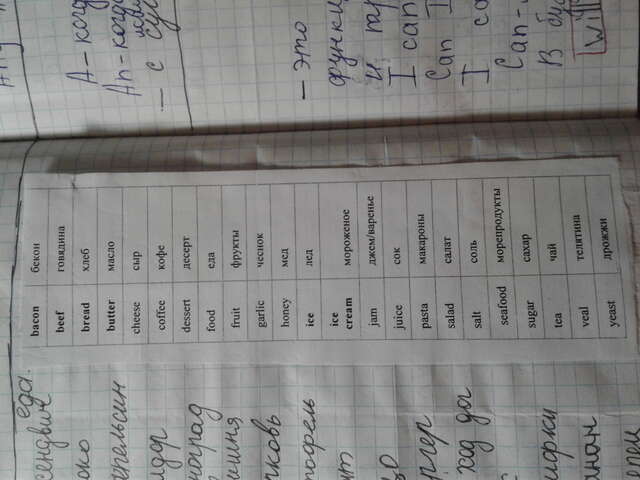 еда.
ендвич
око
апельсин
ноград
ишня
рковь
тофель
ргер
ход дог
анан
bacon бекон
beef говядина
bread хлеб
butter масло
cheese сыр
coffee кофе
dessert десерт
food еда
fruit фрукты
garlic чеснок
honey мед
ice лед
ice
cream мороженое
jam джем/варенье
juice сок
pasta макароны
salad салат
salt соль
seafood морепродукты
sugar сахар
tea чай
veal телятина
yeast дрожжи
А - когд
An - когда
- с сущ
- это
функц
и
I can
Can I
I ca
Can -
В
Will